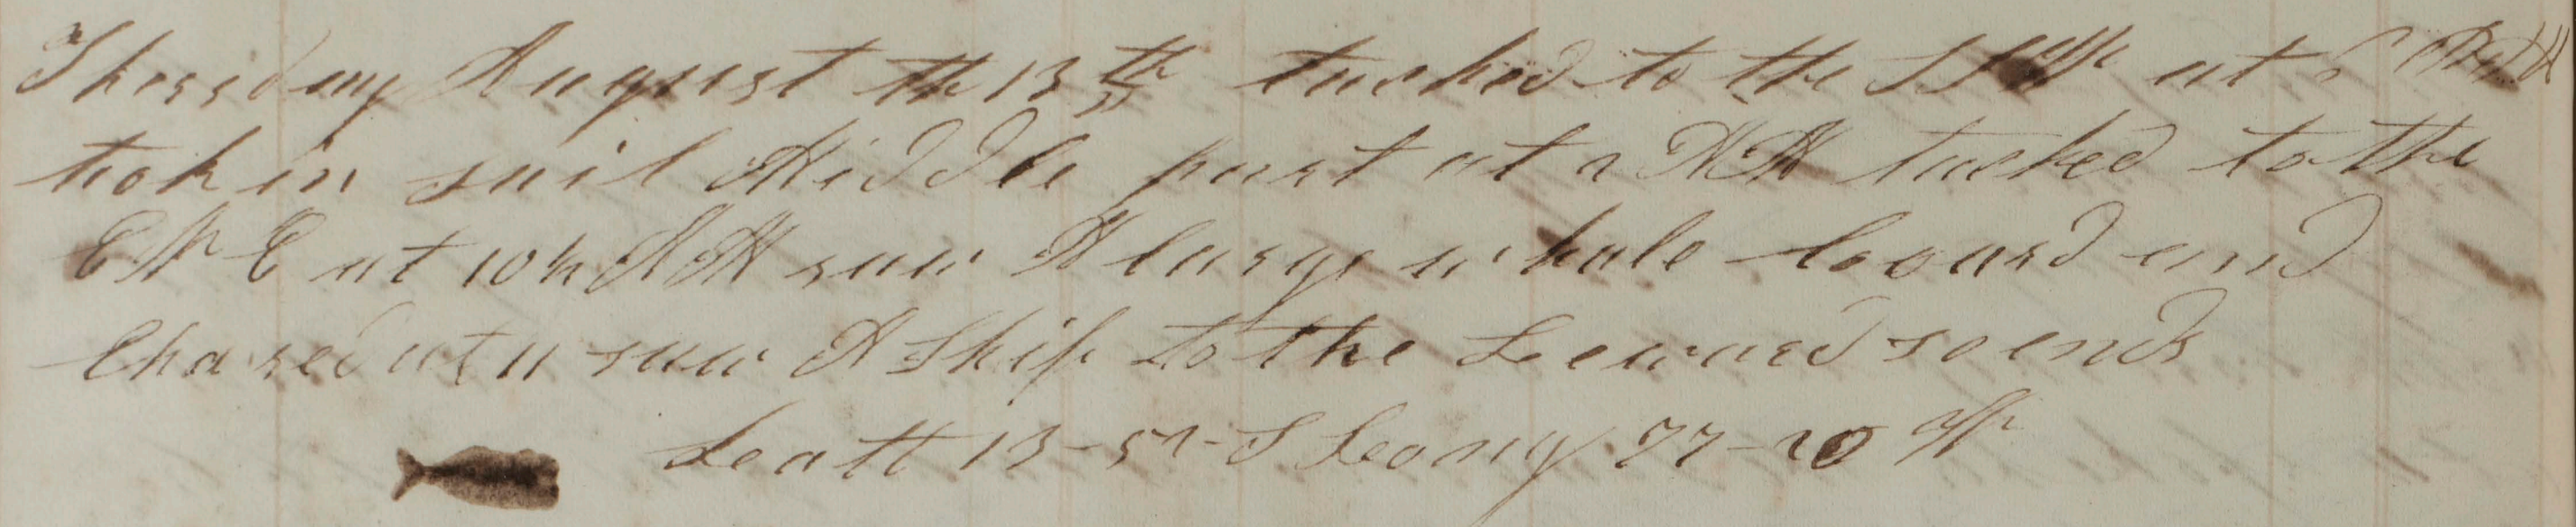 Thursday August th 13th tacked to the SSW at 6 PM
took in sail Middle part at 2 AM tacked to the
ENE at 10h AM saw A large whale loward and
Chased at 11 saw A Ship to the Leeward so ends
Leatt 13-52-S Leong 77-20 W